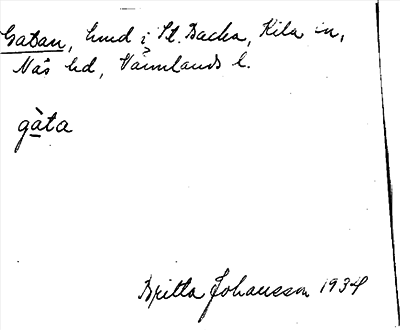 Gatan, hmd i St. Backa, Kila sn,
Näs hd, Värmlands l.
gàta
Britta Johansson 1934